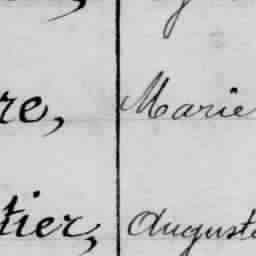 re, Marie
tier, Auguste